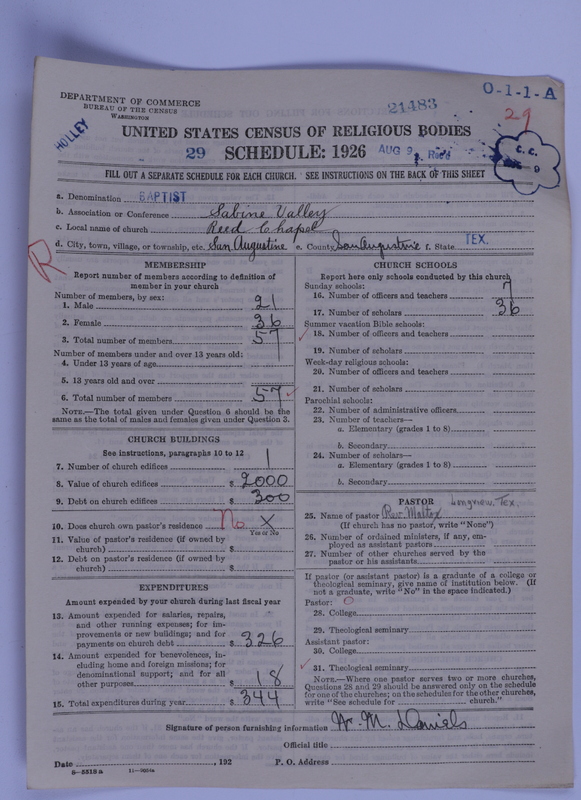 DEPARTMENT OF COMMERCE
BUREAU OF THE CENSUS
WASHINGTON
HOLLEY
21483
O-1-1-A
29
UNITED STATES CENSUS OF RELIGIOUS BODIES
29 SCHEDULE: 1926 AUG 9 Rec'd
C. C.
9
FILL OUT A SEPARATE SCHEDULE FOR EACH CHURCH. SEE INSTRUCTIONS ON THE BACK OF THIS SHEET
a. Denomination BAPTIST
b. Association or Conference Sabine Valley
c. Local name of church Reed Chapel
d. City, town, village, or township, etc. San Augustine e. County San Augustine f. State TEX.
R
MEMBERSHIP
Report number of members according to definition of
member in your church
Number of members, by sex:
1. Male 21
2. Female 36
3. Total number of members 57
Number of members under and over 13 years old:
4. Under 13 years of age
5. 13 years old and over
6. Total number of members 57
NOTE.—The total given under Question 6 should be the
same as the total of males and females given under Question 3.
CHURCH BUILDINGS
See instructions, paragraphs 10 to 12
7. Number of church edifices 1
8. Value of church edifices $ 2000
9. Debt on church edifices $ 300
10. Does church own pastor's residence No X
Yes or No
11. Value of pastor's residence (if owned by
church) $
12. Debt on pastor's residence (if owned by
church) $
EXPENDITURES
Amount expended by your church during last fiscal year
13. Amount expended for salaries, repairs,
and other running expenses; for im-
provements or new buildings; and for
payments on church debt $ 326
14. Amount expended for benevolences, in-
cluding home and foreign missions; for
denominational support; and for all
other purposes $ 18
15. Total expenditures during year $ 344
CHURCH SCHOOLS
Report here only schools conducted by this church
Sunday schools:
16. Number of officers and teachers 7
17. Number of scholars 36
Summer vacation Bible schools:
18. Number of officers and teachers
19. Number of scholars
Week-day religious schools:
20. Number of officers and teachers
21. Number of scholars
Parochial schools:
22. Number of administrative officers
23. Number of teachers—
a. Elementary (grades 1 to 8)
b. Secondary
24. Number of scholars—
a. Elementary (grades 1 to 8)
b. Secondary
PASTOR Longview, Tex.
25. Name of pastor Rev. Maltox
(If church has no pastor, write "None")
26. Number of ordained ministers, if any, em-
ployed as assistant pastors
27. Number of other churches served by the
pastor or his assistants
If pastor (or assistant pastor) is a graduate of a college or
theological seminary, give name of institution below. (If
not a graduate, write "No" in the space indicated.)
Pastor: O
28. College
29. Theological seminary
Assistant pastor:
30. College
31. Theological seminary
NOTE.—Where one pastor serves two or more churches,
Questions 28 and 29 should be answered only on the schedule
for one of the churches; on the schedules for the other churches,
write "See schedule for church."
Signature of person furnishing information W. M. Daniels
Official title
Date , 192 P. O. Address
8—5518 a